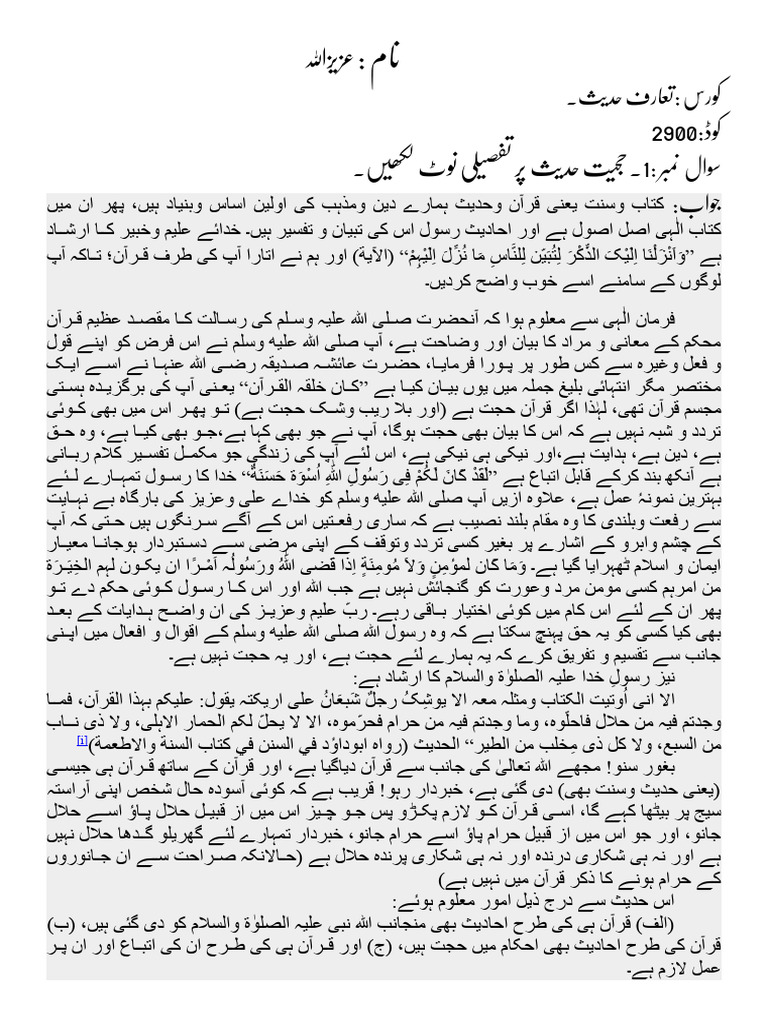 نام : عزیزاللہ
کورس :تعارف حدیث۔
کوڈ:2900
سوال نمبر:1۔ حجیت حدیث پر تفصیلی نوٹ لکھیں۔
جواب: کتاب وسنت یعنی قرآن وحدیث ہمارے دین ومذہب کی اولین اساس وبنیاد ہیں، پھر ان میں
کتاب الٰہی اصل اصول ہے اور احادیث رسول اس کی تبیان و تفسیر ہیں۔ خدائے علیم وخبیر کا ارشاد
ہے ”وَاَنْزَلْنَا اِلَیْکَ الذِّکْرَ لِتُبَیّن لِلنَّاسِ مَا نُزِّلَ اِلَیْہِمْ“ (الآیة) اور ہم نے اتارا آپ کی طرف قرآن؛ تاکہ آپ
لوگوں کے سامنے اسے خوب واضح کردیں۔
فرمان الٰہی سے معلوم ہوا کہ آنحضرت صلی اللہ علیہ وسلم کی رسالت کا مقصد عظیم قرآن
محکم کے معانی و مراد کا بیان اور وضاحت ہے، آپ صلی اللہ علیہ وسلم نے اس فرض کو اپنے قول
و فعل وغیرہ سے کس طور پر پورا فرمایا، حضرت عائشہ صدیقہ رضی اللہ عنہا نے اسے ایک
مختصر مگر انتہائی بلیغ جملہ میں یوں بیان کیا ہے ”کان خلقہ القرآن“ یعنی آپ کی برگزیدہ ہستی
مجسم قرآن تھی، لہٰذا اگر قرآن حجت ہے (اور بلا ریب وشک حجت ہے) تو پھر اس میں بھی کوئی
تردد و شبہ نہیں ہے کہ اس کا بیان بھی حجت ہوگا، آپ نے جو بھی کہا ہے،جو بھی کیا ہے، وہ حق
ہے، دین ہے، ہدایت ہے،اور نیکی ہی نیکی ہے، اس لئے آپ کی زندگی جو مکمل تفسیر کلام ربانی
ہے آنکھ بند کرکے قابل اتباع ہے ”لَقَدْ کَانَ لَکُمْ فِی رَسُولِ اللّٰہِ اُسْوَة حَسَنَةٌ“ خدا کا رسول تمہارے لئے
بہترین نمونہٴ عمل ہے، علاوہ ازیں آپ صلی اللہ علیہ وسلم کو خداے علی وعزیز کی بارگاہ بے نہایت
سے رفعت وبلندی کا وہ مقام بلند نصیب ہے کہ ساری رفعتیں اس کے آگے سرنگوں ہیں حتی کہ آپ
کے چشم وابرو کے اشارے پر بغیر کسی تردد وتوقف کے اپنی مرضی سے دستبردار ہوجانا معیار
ایمان و اسلام ٹھہرایا گیا ہے۔ وَمَا کان لموٴمنٍ وَلاَ مُومِنَةٍ اِذا قضی اللّٰہُ ورَسُولُہ اَمْرًا ان یکون لہم الخِیَرَة
من امرہم کسی مومن مرد وعورت کو گنجائش نہیں ہے جب اللہ اور اس کا رسول کوئی حکم دے تو
پھر ان کے لئے اس کام میں کوئی اختیار باقی رہے۔ ربّ علیم وعزیز کی ان واضح ہدایات کے بعد
بھی کیا کسی کو یہ حق پہنچ سکتا ہے کہ وہ رسول اللہ صلی اللہ علیہ وسلم کے اقوال و افعال میں اپنی
جانب سے تقسیم و تفریق کرے کہ یہ ہمارے لئے حجت ہے، اور یہ حجت نہیں ہے۔
نیز رسولِ خدا علیہ الصلوٰة والسلام کا ارشاد ہے:
الا انی اُوتیت الکتاب ومثلہ معہ الا یوشِکُ رجلٌ شَبعَانُ علی اریکتہ یقول: علیکم بہذا القرآن، فما
وجدتم فیہ من حلال فاحلّوہ، وما وجدتم فیہ من حرام فحرّموہ، الا لا یحلّ لکم الحمار الاہلی، ولا ذی ناب
من السبع، ولا کل ذی مِخلب من الطیر“ الحدیث (رواہ ابوداوٴد في السنن في کتاب السنة والاطعمة)[i]
بغور سنو! مجھے اللہ تعالیٰ کی جانب سے قرآن دیاگیا ہے، اور قرآن کے ساتھ قرآن ہی جیسی
(یعنی حدیث وسنت بھی) دی گئی ہے، خبردار رہو! قریب ہے کہ کوئی آسودہ حال شخص اپنی آراستہ
سیج پر بیٹھا کہے گا، اسی قرآن کو لازم پکڑو پس جو چیز اس میں از قبیل حلال پاوٴ اسے حلال
جانو، اور جو اس میں از قبیل حرام پاوٴ اسے حرام جانو، خبردار تمہارے لئے گھریلو گدھا حلال نہیں
ہے اور نہ ہی شکاری درندہ اور نہ ہی شکاری پرندہ حلال ہے (حالانکہ صراحت سے ان جانوروں
کے حرام ہونے کا ذکر قرآن میں نہیں ہے)
اس حدیث سے درج ذیل امور معلوم ہوئے:
(الف) قرآن ہی کی طرح احادیث بھی منجانب اللہ نبی علیہ الصلوٰة والسلام کو دی گئی ہیں، (ب)
قرآن کی طرح احادیث بھی احکام میں حجت ہیں، (ج) اور قرآن ہی کی طرح ان کی اتباع اور ان پر
عمل لازم ہے۔